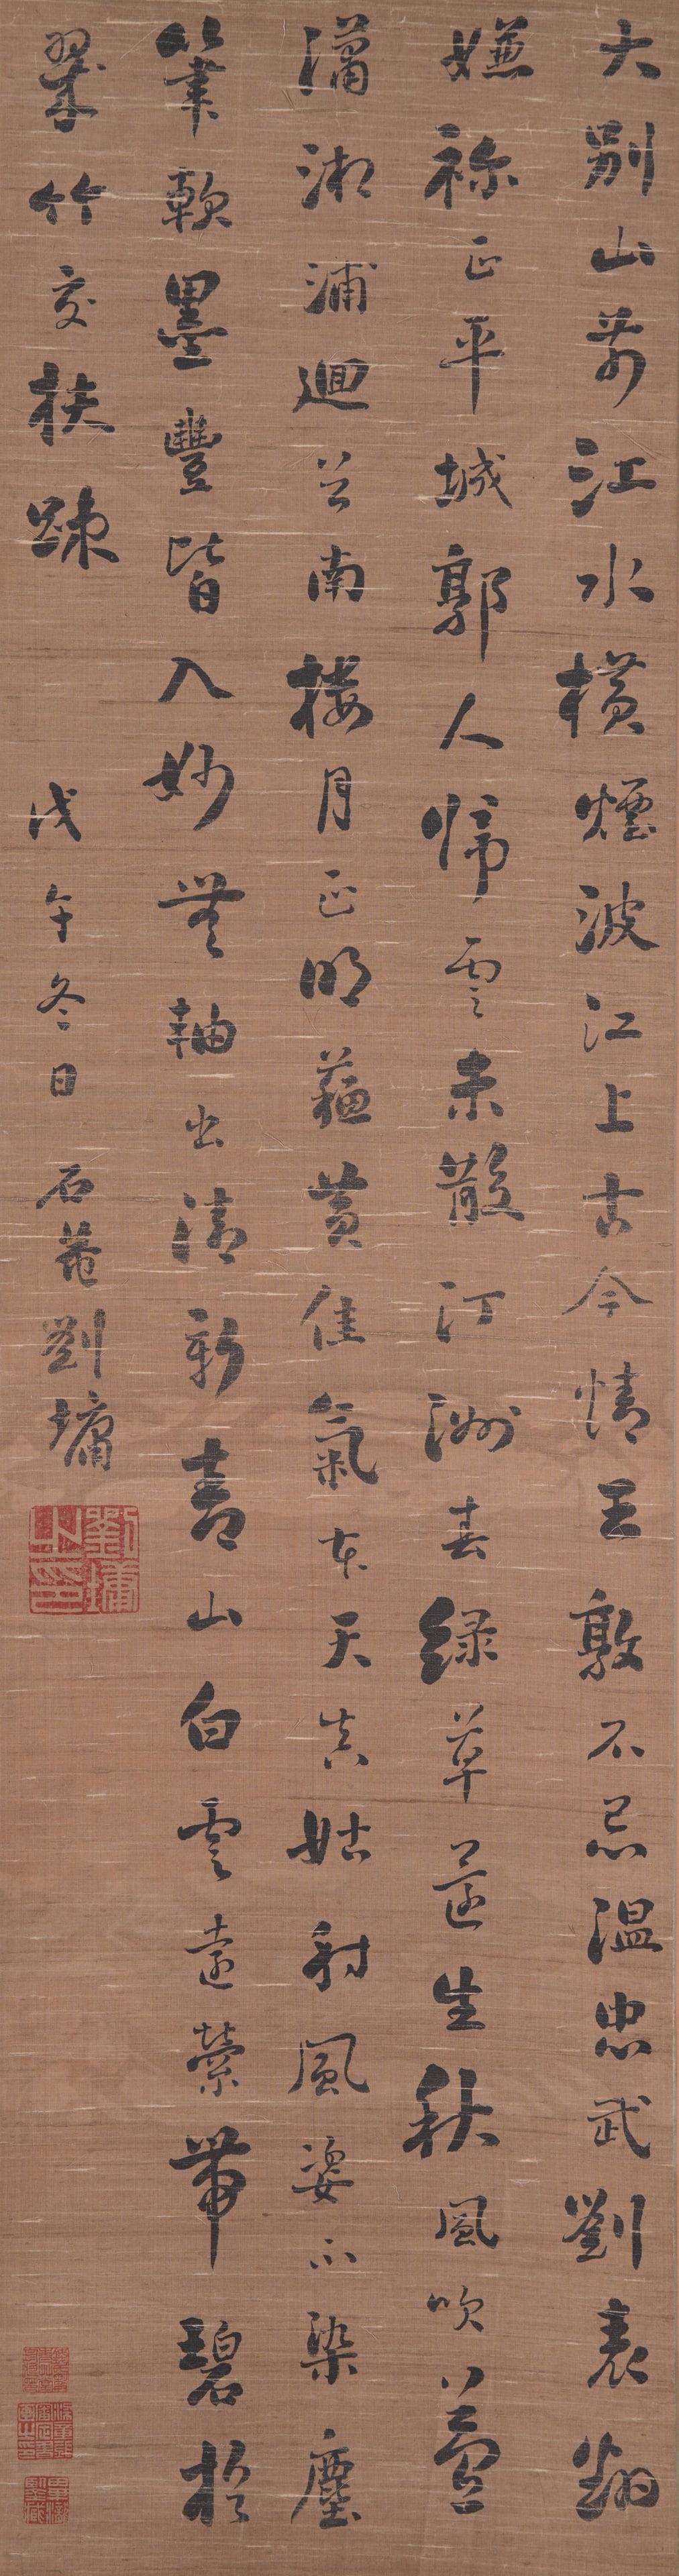 大別山前江水橫煙波江上古今情王敦不忌溫忠武劉表翻
嫌禰正平城郭人歸雲未散汀洲春綠草還生秋風吹簹
瀟湘浦迴首南樓月正明蘇黃佳氣本天真姑射風姿不染塵
筆軟墨豐皆入妙無窮出清新青山白雲遠縈帶碧梧
翠竹交扶疎
戊午冬日 石菴劉墉
劉墉之印